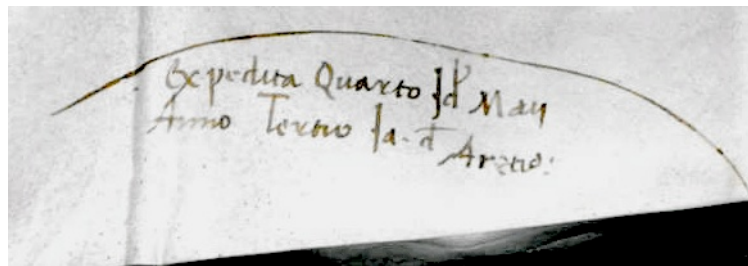 Expedita Quarto Id Maij
Anno Tertio Ja. d Aretio: